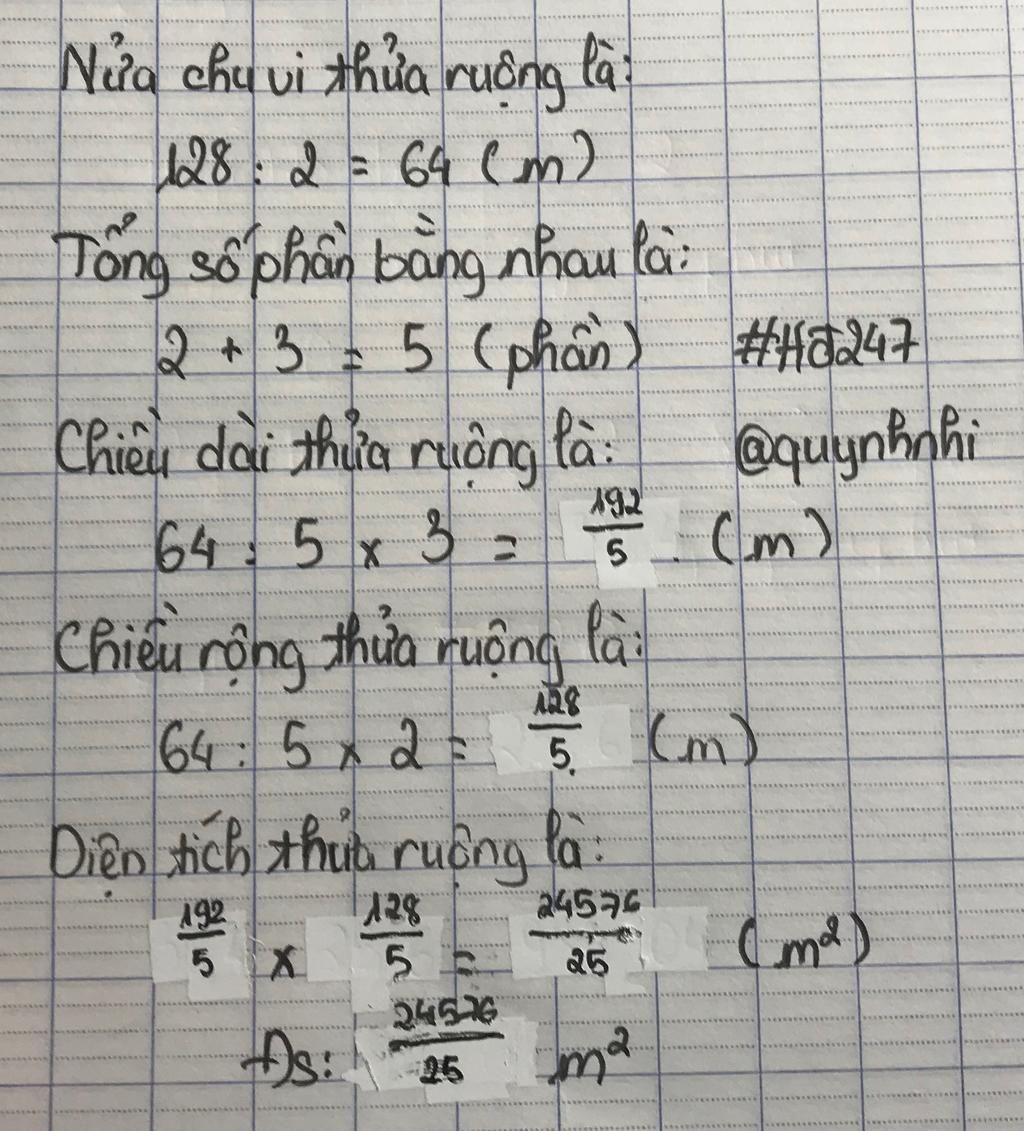 Nửa chu vi thửa ruộng là:
128 : 2 = 64 (m)
Tổng số phần bằng nhau là:
2 + 3 = 5 (phần) #Hđ247
Chiều dài thửa ruộng là: @quynhnhi
64 : 5 x 3 = 192/5 (m)
Chiều rộng thửa ruộng là:
64 : 5 x 2 = 128/5 (m)
Diện tích thửa ruộng là:
192/5 x 128/5 = 24576/25 (m²)
Đs: 24576/25 m²